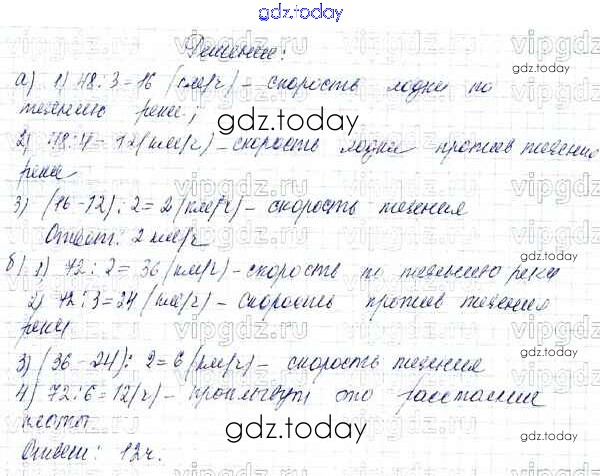 gdz.today
Решение:
а) 1) 48:3=16 (км/ч) – скорость лодки по
течению реки;
2) 48:4=12(км/ч) – скорость лодки против течения
реки
3) (16-12):2=2(км/ч) – скорость течения
Ответ: 2 км/ч
б) 1) 72:2=36(км/ч) – скорость по течению реки
2) 72:3=24(км/ч) – скорость против течения
реки
3) (36-24):2=6(км/ч) – скорость течения
4) 72:6=12(ч) – проплывут это расстояние
плоты
Ответ: 12ч.
gdz.today
gdz.today
gdz.today
gdz.today
gdz.today
gdz.today